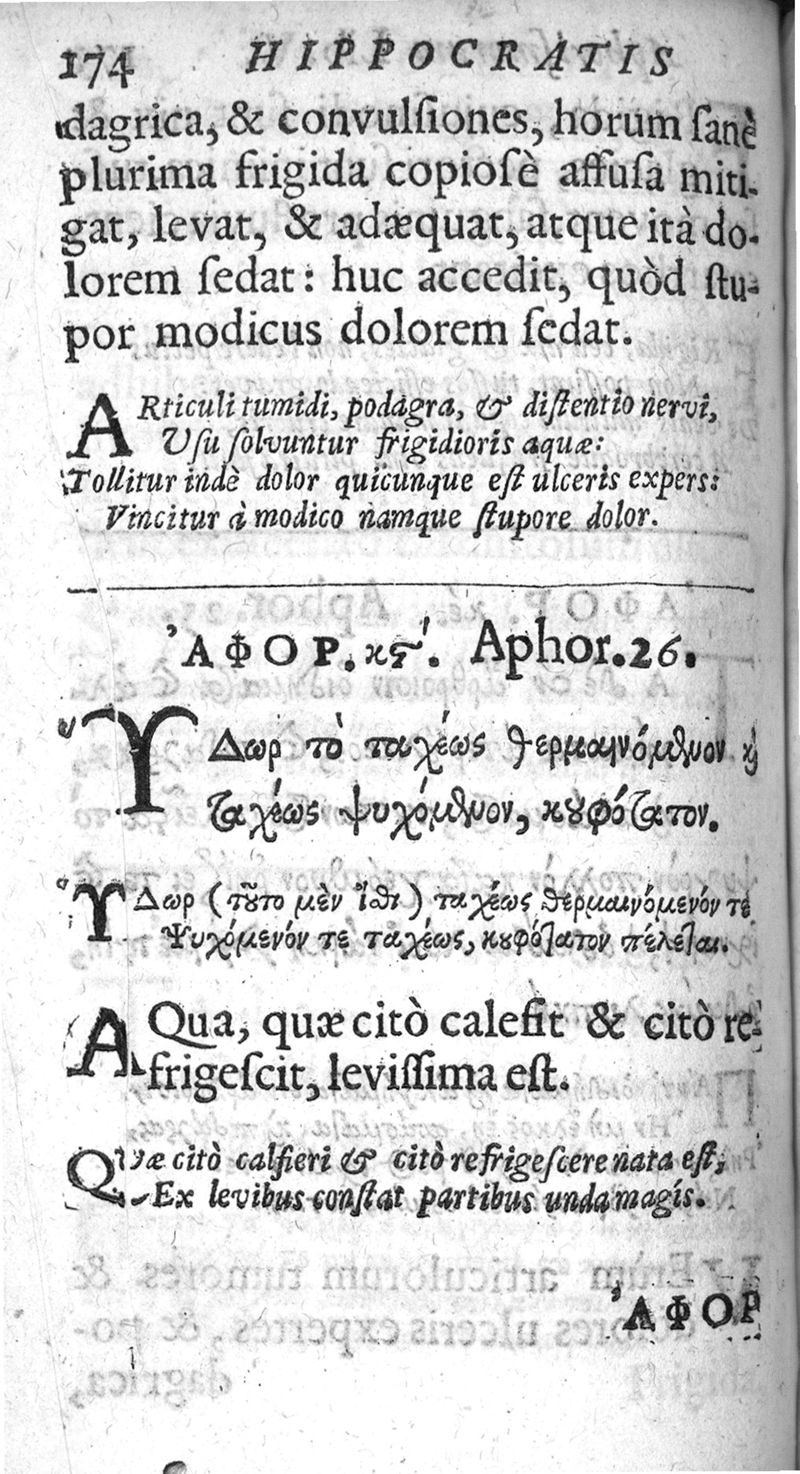 174 HIPPOCRATIS
dagrica, & convulſiones, horum ſanè
plurima frigida copioſè affuſa miti-
gat, levat, & adæquat, atque ità do-
lorem ſedat: huc accedit, quòd ſtu-
por modicus dolorem ſedat.
ARticuli tumidi, podagra, & diſtentio nervi,
Uſu ſolvuntur frigidioris aquæ:
Tollitur indè dolor quicunque eſt ulceris expers:
Vincitur à modico namque ſtupore dolor.
ἈΦΟΡ. κϛʹ. Aphor. 26.
ὝΔωρ τὸ ταχέως θερμαινόμενον καὶ
ταχέως ψυχόμενον, κουφότατον.
ὝΔωρ (τοῦτο μὲν ἴσθι) ταχέως θερμαινόμενόν τε
Ψυχόμενόν τε ταχέως, κουφότατον πέλεται.
AQua, quæ citò calefit & citò re-
frigeſcit, leviſſima eſt.
QVæ citò calfieri & citò refrigeſcere nata eſt,
Ex levibus conſtat partibus unda magis.
ἈΦΟΡ